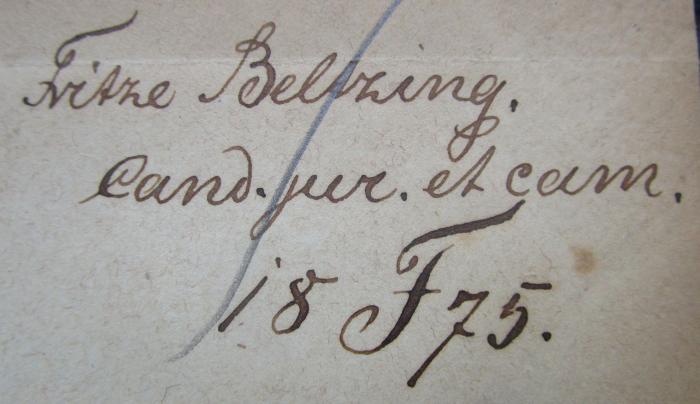 Fritze Beltzing.
Cand. jur. et cam.
18 F 75.